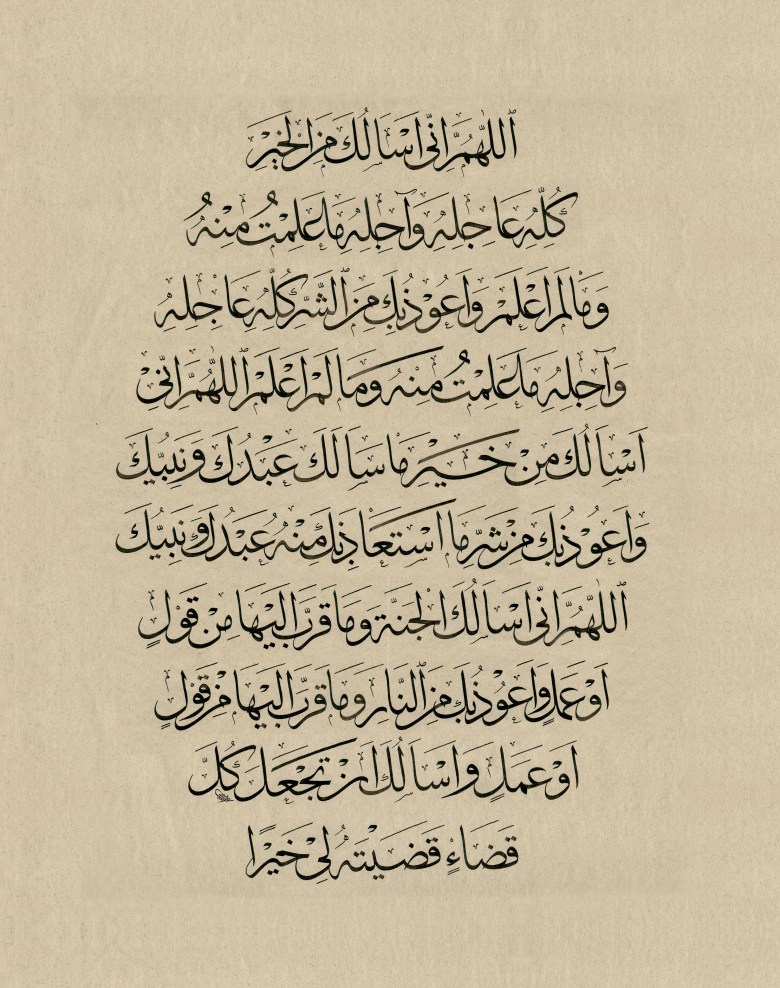 ٱللّٰهُمَّ اِنّٖى اَسْاَلُكَ مِنَ الْخَيْرِ
كُلِّهٖ عَاجِلِهٖ وَآجِلِهٖ مَا عَلِمْتُ مِنْهُ
وَمَا لَمْ اَعْلَمْ وَاَعُوْذُ بِكَ مِنَ ٱلشَّرِّ كُلِّهٖ عَاجِلِهٖ
وَآجِلِهٖ مَا عَلِمْتُ مِنْهُ وَمَا لَمْ اَعْلَمْ ٱللّٰهُمَّ اِنّٖى
اَسْاَلُكَ مِنْ خَيْرِ مَا سَاَلَكَ عَبْدُكَ وَنَبِيُّكَ
وَاَعُوْذُ بِكَ مِنْ شَرِّ مَا اسْتَعَاذَ بِكَ مِنْهُ عَبْدُكَ وَنَبِيُّكَ
ٱللّٰهُمَّ اِنّٖى اَسْاَلُكَ الْجَنَّةَ وَمَا قَرَّبَ اِلَيْهَا مِنْ قَوْلٍ
اَوْ عَمَلٍ وَاَعُوْذُ بِكَ مِنَ ٱلنَّارِ وَمَا قَرَّبَ اِلَيْهَا مِنْ قَوْلٍ
اَوْ عَمَلٍ وَاَسْاَلُكَ اَنْ تَجْعَلَ كُلَّ
قَضَاءٍ قَضَيْتَهُ لِيْ خَيْرًا